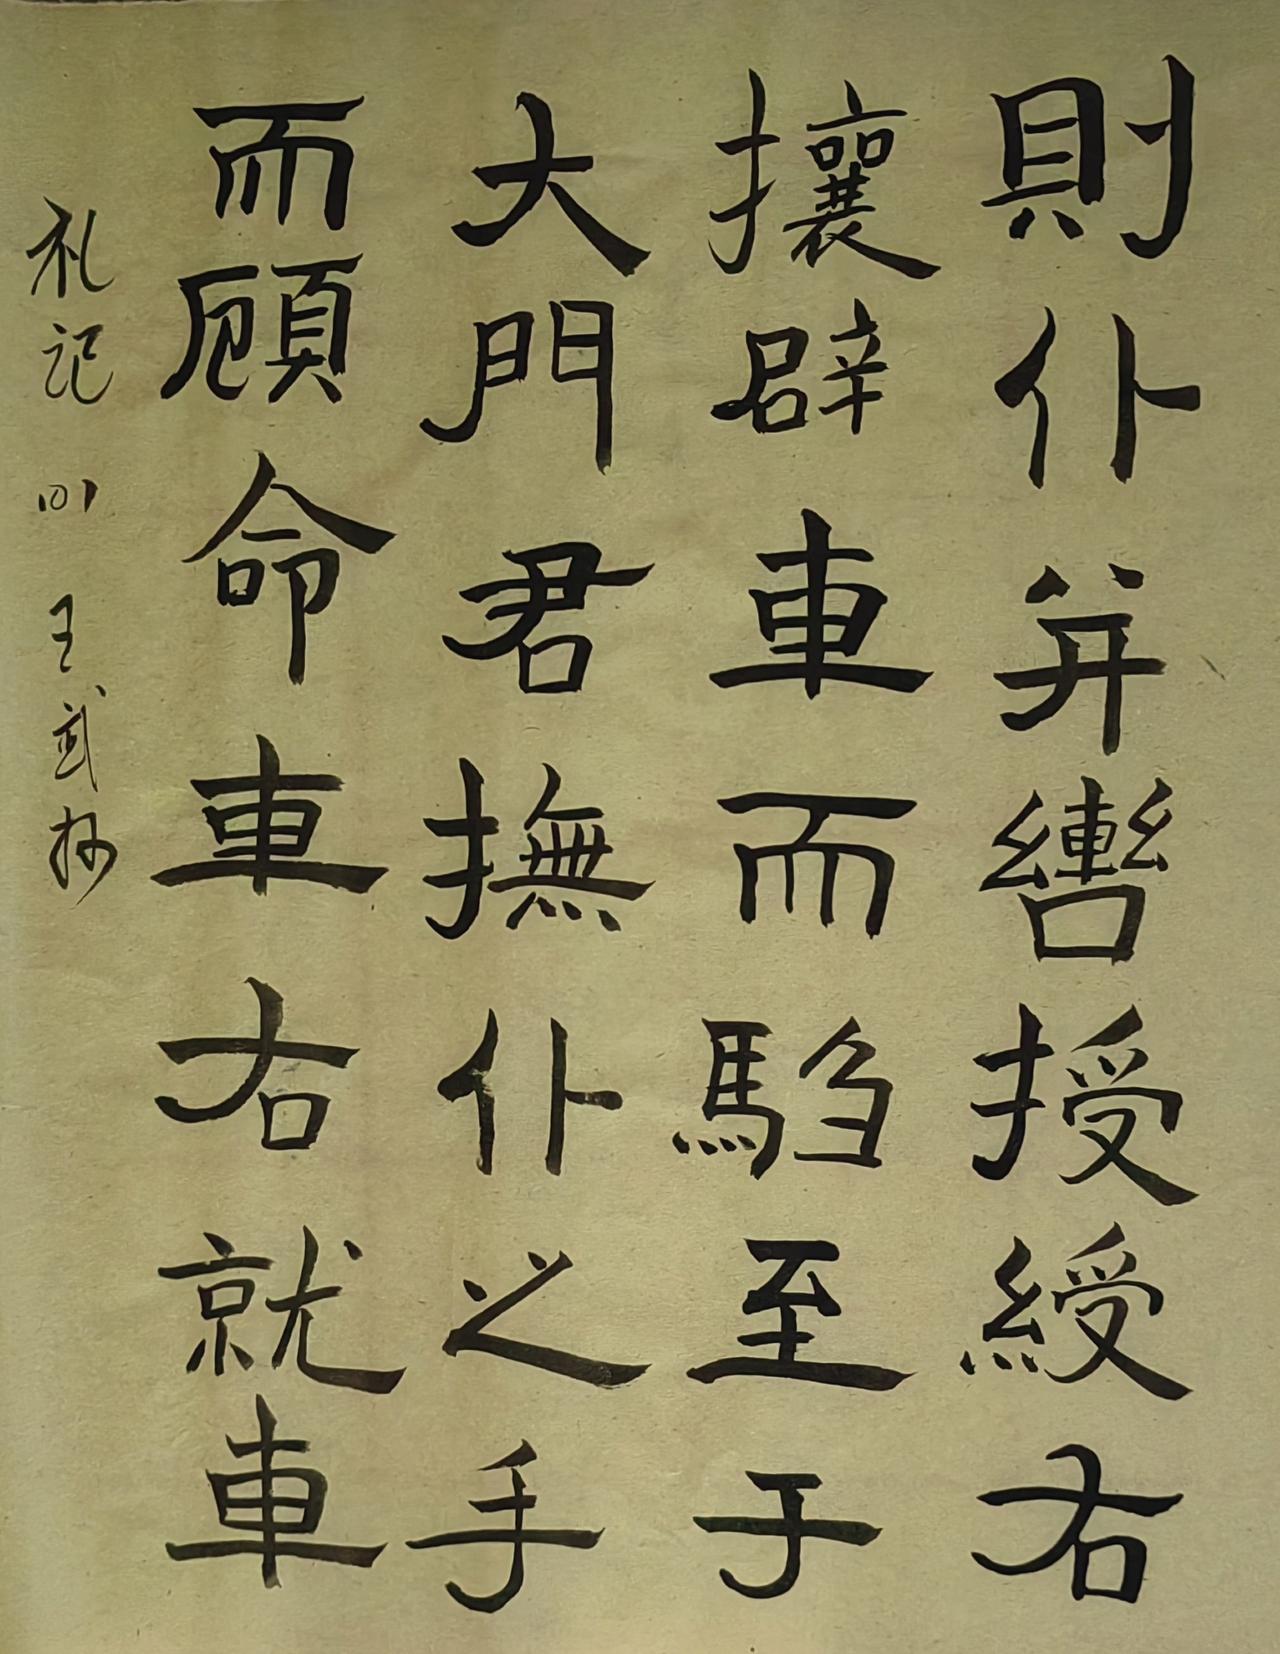 則仆并轡授綬右
攘辟車而騶至于
大門君撫仆之手
而顧命車右就車
礼记 王武